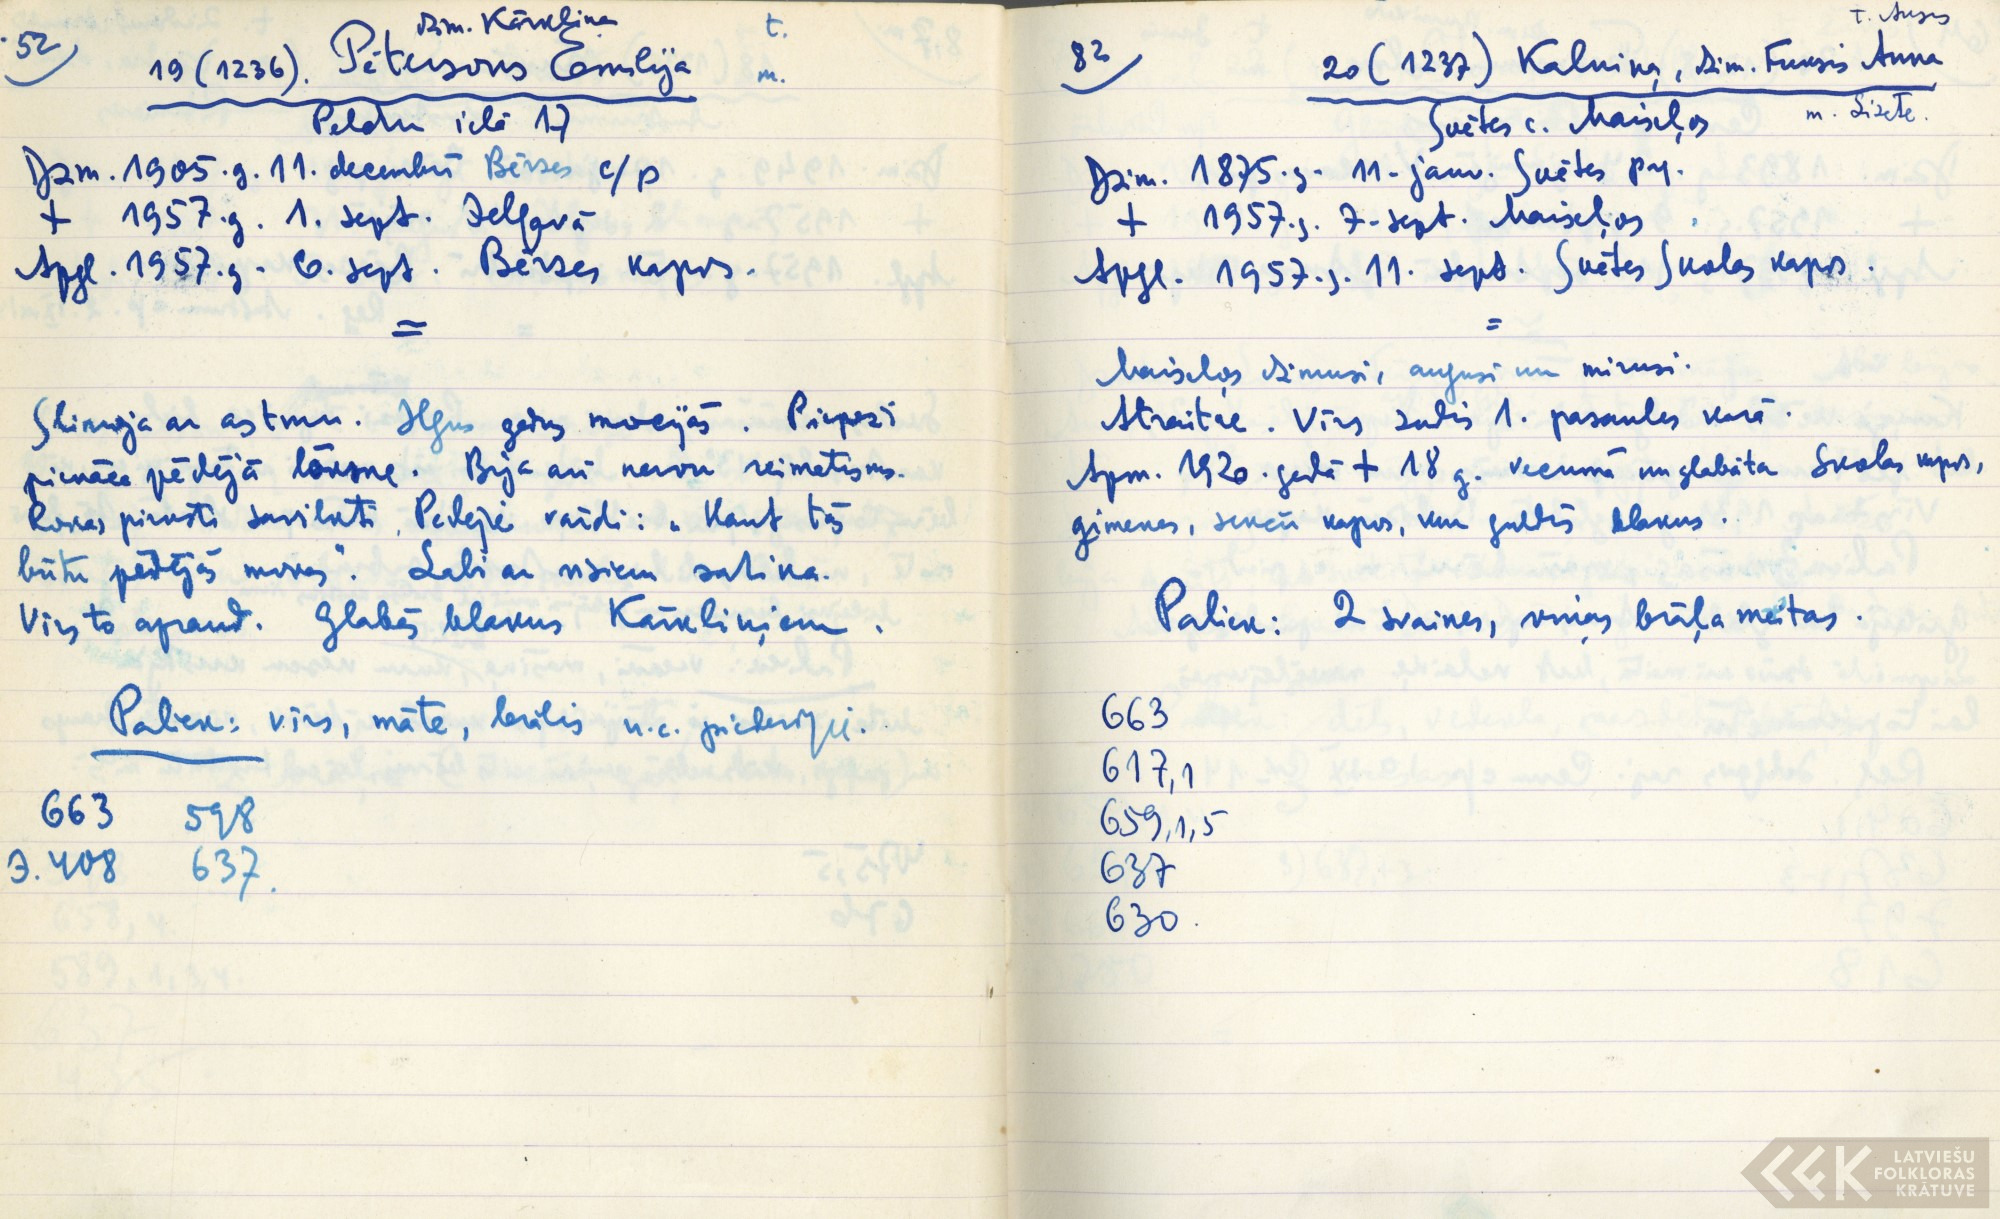 52
dzim. Kārkliņa
t.
19 (1236). Pētersons Emilija
m.
Peldu ielā 17
Dzm. 1905. g. 11. decembrī Bērzes c/p
+ 1957. g. 1. sept. Jelgavā
Apgl. 1957. g. 6. sept. Bērzes kapos.
=
Slimoja ar astmu. Ilgus gadus mocījās. Piepeži
pienāca pēdējā lēkme. Bija arī nervu reimatisms.
Rokas pirksti savilkti. Pēdējie vārdi: „Kaut tās
būtu pēdējās mokas". Labi ar visiem satika.
Vīrs to apraud. Glabās blakus Kārkliņiem.
Paliek: vīrs, māte, brālis u.c. piederīgi.
663 598
Э. 408 637.
82
t. Anss
20 (1237) Kalniņa, dzim. Funsis Anna
m. Lizete.
Svētes c. Maisiņos
Dzim. 1875. g. 11. janv. Svētes pg.
+ 1957. g. 7. sept. Maisiņos
Apgl. 1957. g. 11. sept. Svētes Skolas kapos.
=
Maisiņos dzimusi, augusi un mirusi.
Atraitne. Vīrs zudis 1. pasaules karā.
Apm. 1920. gadā + 18 g. vecumā un glabāta Skolas kapos,
ģimenes, senču kapos, kur guldīs blakus.
Paliek: 2 svaines, viņas brāļa meitas.
663
617,1
659,1,5
637
630.
LATVIEŠU
FOLKLORAS
KRĀTUVE